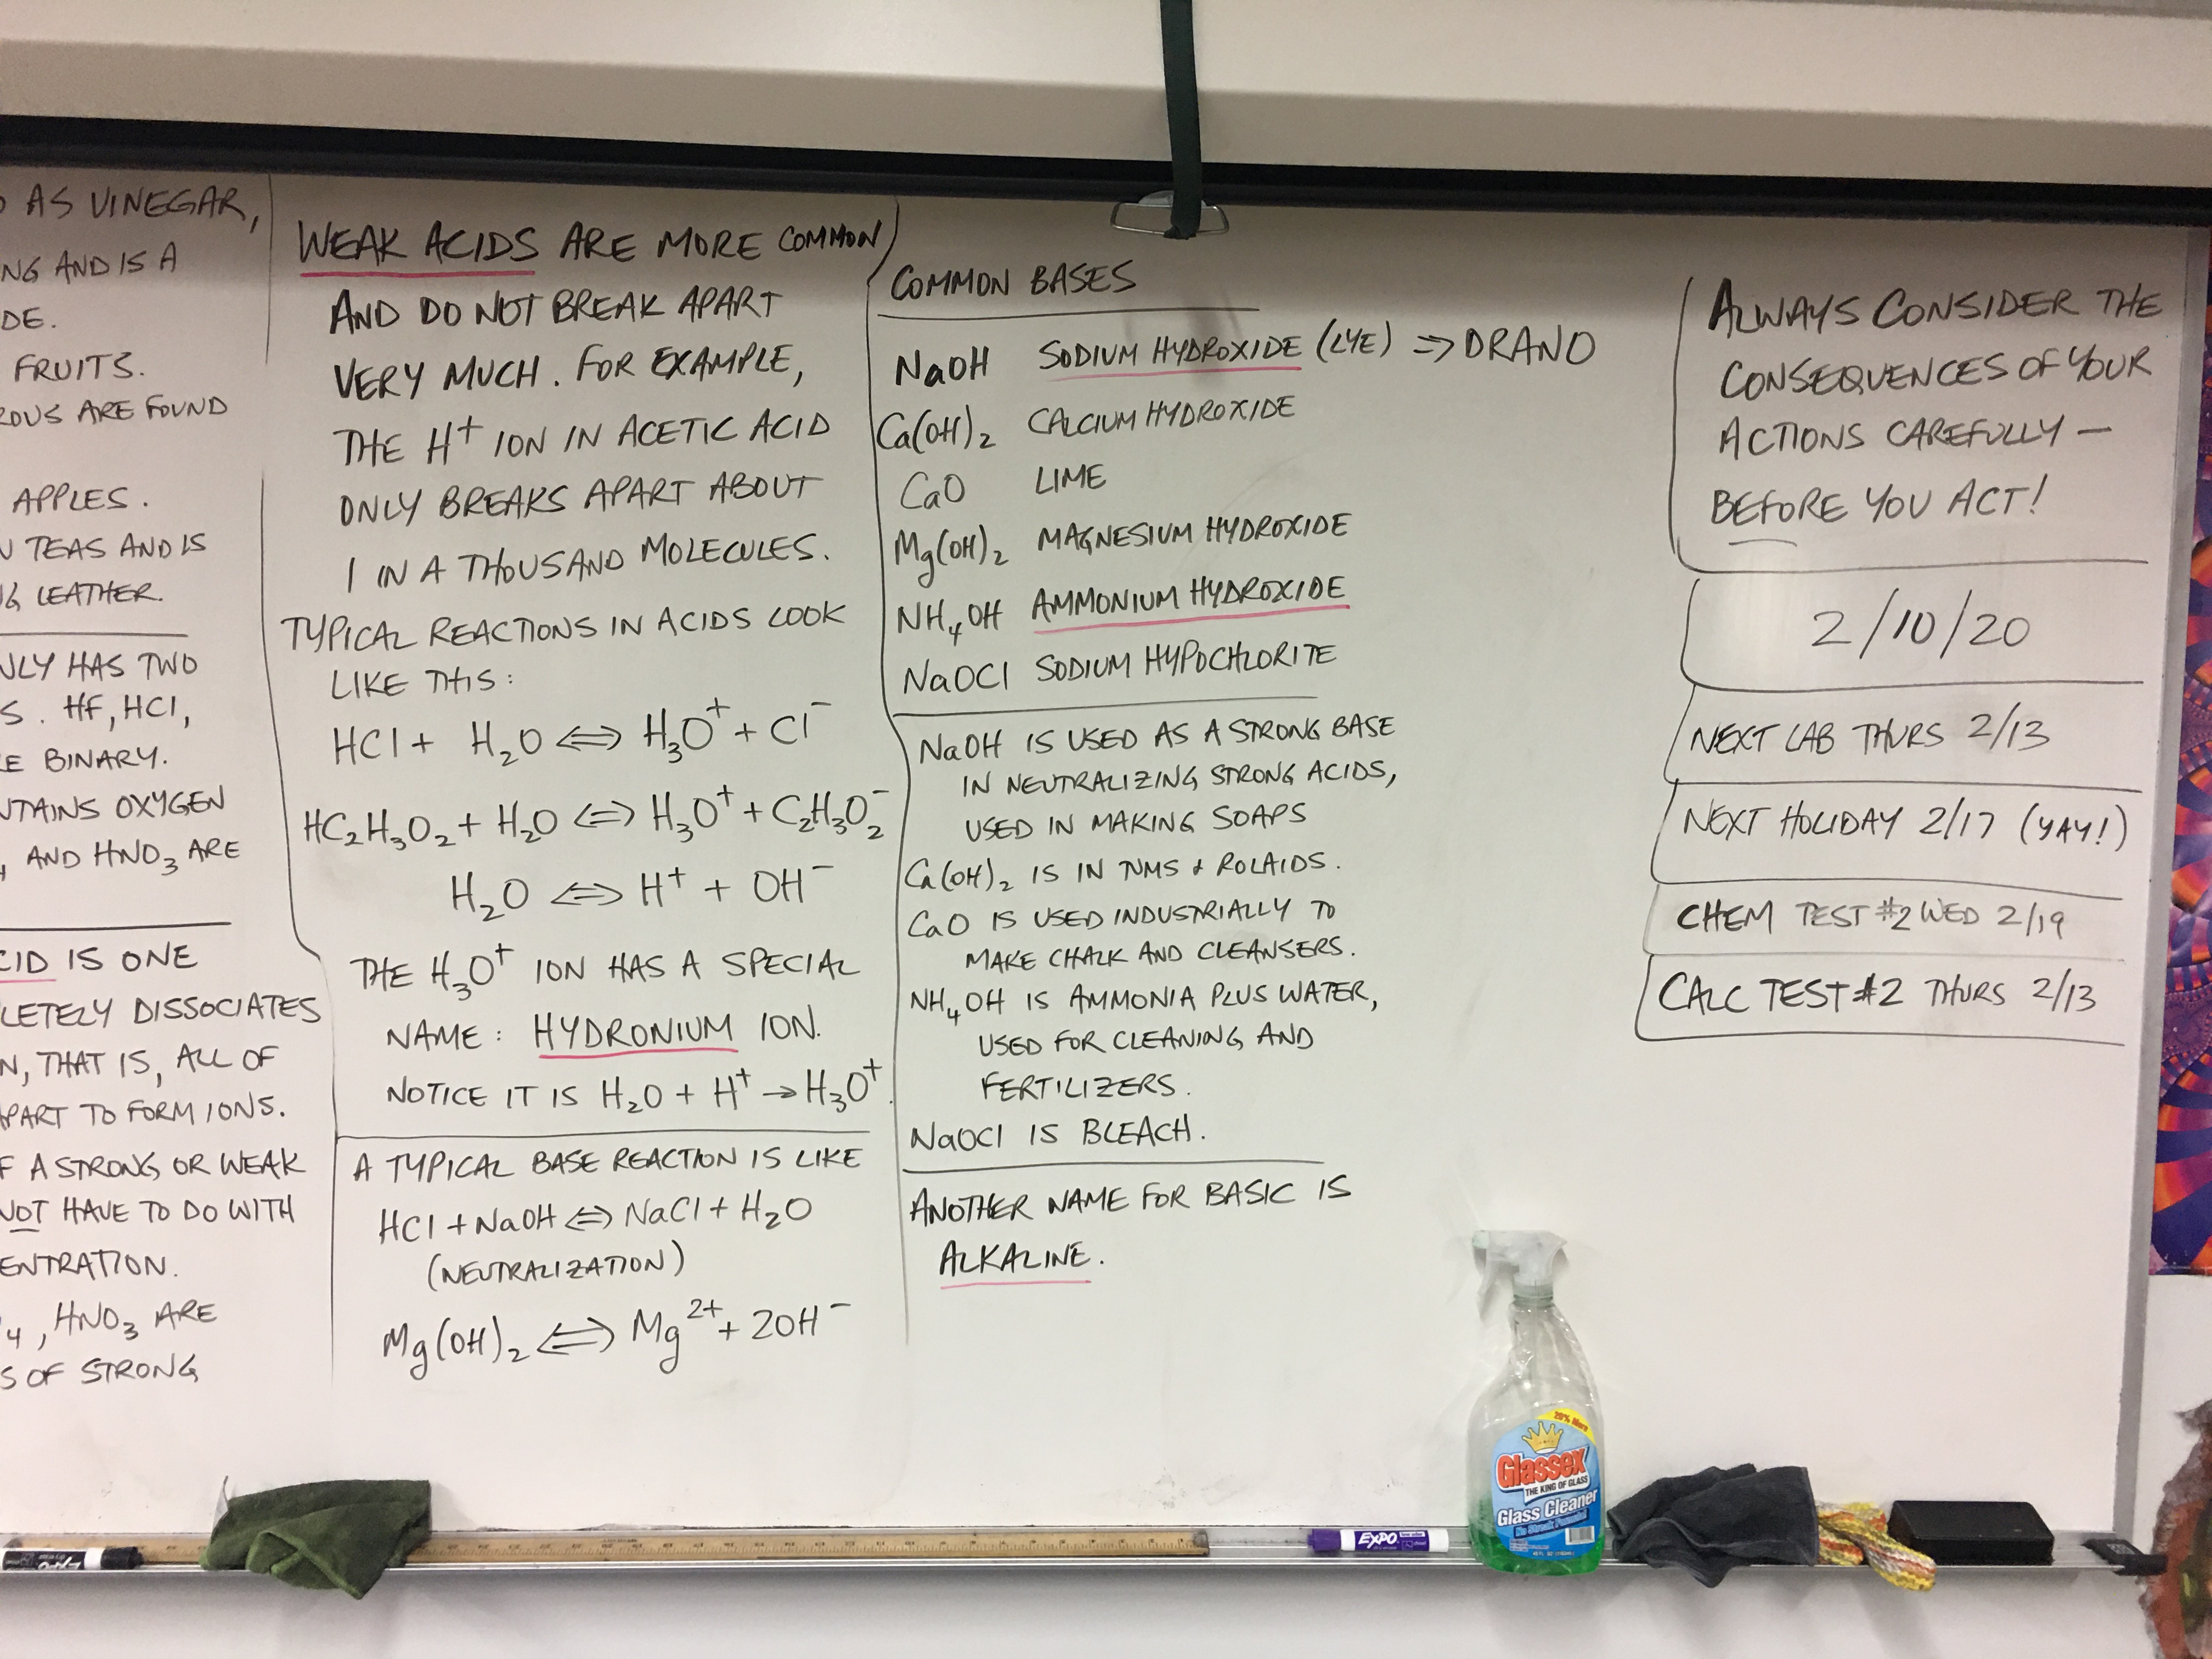 AS VINEGAR,
NG AND IS A
DE.
FRUITS.
ROUS ARE FOUND
APPLES.
N TEAS AND IS
NG LEATHER.
NLY HAS TWO
S. HF, HCl,
RE BINARY.
NTAINS OXYGEN
AND HNO₃ ARE
CID IS ONE
LETELY DISSOCIATES
N, THAT IS, ALL OF
APART TO FORM IONS.
F A STRONG OR WEAK
NOT HAVE TO DO WITH
ENTRATION.
₄, HNO₃ ARE
S OF STRONG
WEAK ACIDS ARE MORE COMMON
AND DO NOT BREAK APART
VERY MUCH. FOR EXAMPLE,
THE H⁺ ION IN ACETIC ACID
ONLY BREAKS APART ABOUT
1 IN A THOUSAND MOLECULES.
TYPICAL REACTIONS IN ACIDS LOOK
LIKE THIS:
HCl + H₂O ⇔ H₃O⁺ + Cl⁻
HC₂H₃O₂ + H₂O ⇔ H₃O⁺ + C₂H₃O₂⁻
H₂O ⇔ H⁺ + OH⁻
THE H₃O⁺ ION HAS A SPECIAL
NAME: HYDRONIUM ION.
NOTICE IT IS H₂O + H⁺ → H₃O⁺.
A TYPICAL BASE REACTION IS LIKE
HCl + NaOH ⇔ NaCl + H₂O
(NEUTRALIZATION)
Mg(OH)₂ ⇔ Mg²⁺ + 2OH⁻
COMMON BASES
NaOH SODIUM HYDROXIDE (LYE) ⇒ DRANO
Ca(OH)₂ CALCIUM HYDROXIDE
CaO LIME
Mg(OH)₂ MAGNESIUM HYDROXIDE
NH₄OH AMMONIUM HYDROXIDE
NaOCl SODIUM HYPOCHLORITE
NaOH IS USED AS A STRONG BASE
IN NEUTRALIZING STRONG ACIDS,
USED IN MAKING SOAPS
Ca(OH)₂ IS IN TUMS + ROLAIDS.
CaO IS USED INDUSTRIALLY TO
MAKE CHALK AND CLEANSERS.
NH₄OH IS AMMONIA PLUS WATER,
USED FOR CLEANING AND
FERTILIZERS.
NaOCl IS BLEACH.
ANOTHER NAME FOR BASIC IS
ALKALINE.
ALWAYS CONSIDER THE
CONSEQUENCES OF YOUR
ACTIONS CAREFULLY —
BEFORE YOU ACT!
2/10/20
NEXT LAB THURS 2/13
NEXT HOLIDAY 2/17 (YAY!)
CHEM TEST #2 WED 2/19
CALC TEST #2 THURS 2/13
20% More
Glassex
THE KING OF GLASS
Glass Cleaner
No Streak Formula!
EXPO
EXPO